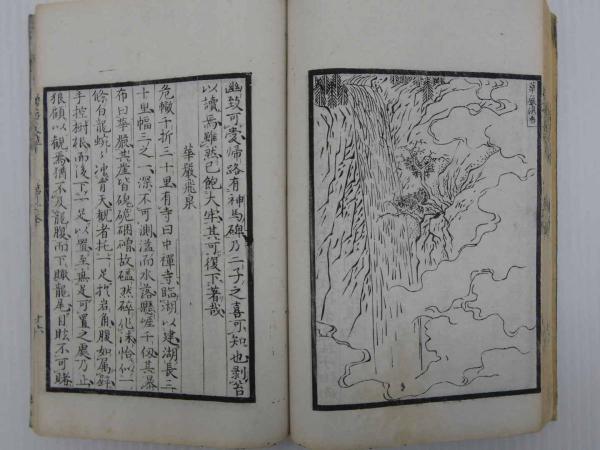 華嚴瀑布
幽鼓可愛歸路有神馬碑乃二子之喜可知也剥苔
以讀焉雖然已飽大半其可復下著哉
華嚴飛泉
危轍千折三十里有寺曰中禪寺臨湖以建湖長三
十里幅三之一深不可測溢而水落懸崖千仭其瀑
布曰華嚴其崖皆磈硊砠礫故磕然碎化沫恰似一
條白龍蜿々沖霄天觀者托一足於岩角腹如屬
手控樹根而後下一足以置至無足可置之處乃止
狼顧以觀焉猶不及龍腹而下瞰龍尾目眩不可